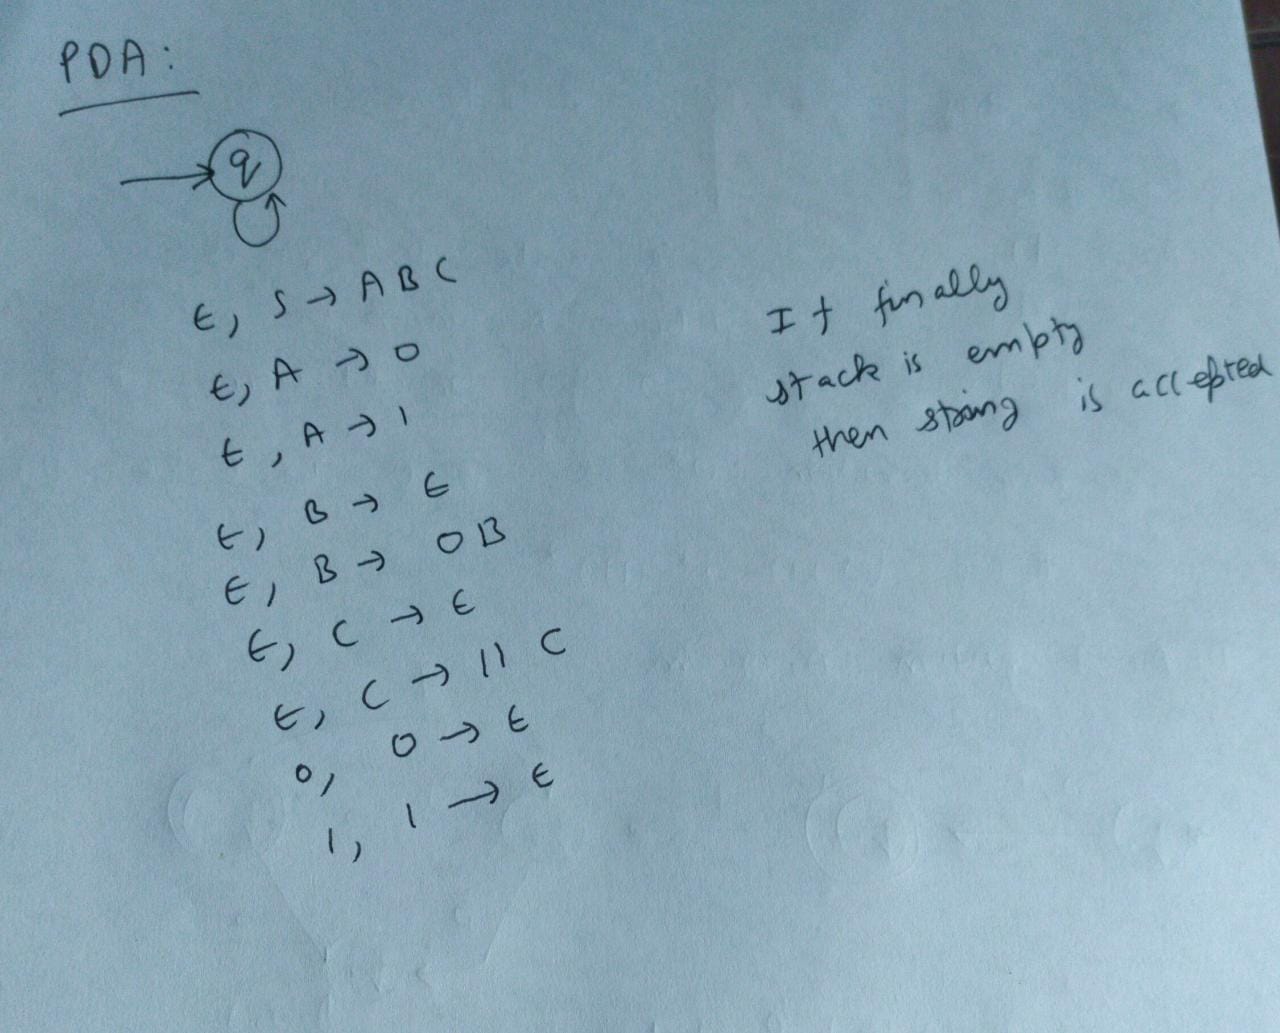 PDA:
q
ε, S → A B C
ε, A → 0
ε, A → 1
ε, B → ε
ε, B → 0 B
ε, C → ε
ε, C → 11 C
0, 0 → ε
1, 1 → ε
If finally
stack is empty
then string is accepted